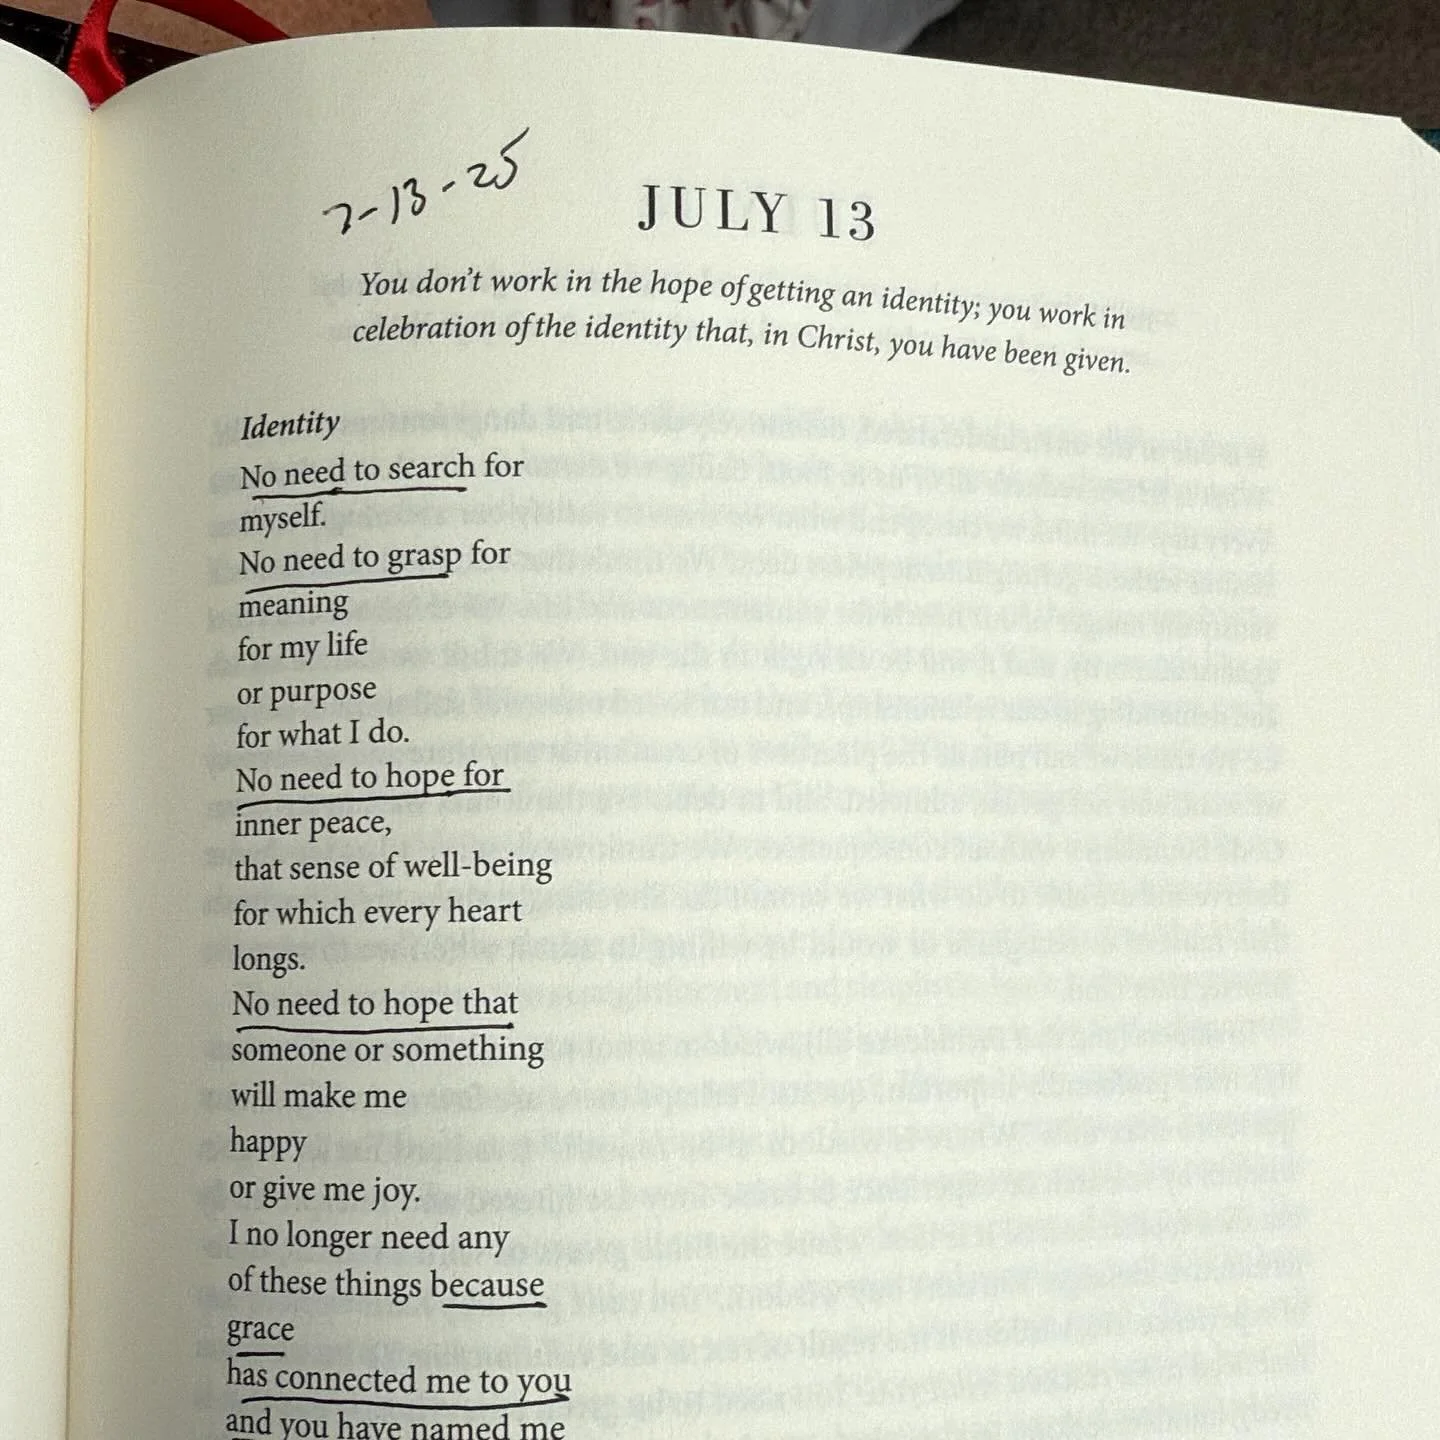 7-13-25
JULY 13
You don't work in the hope of getting an identity; you work in
celebration of the identity that, in Christ, you have been given.
Identity
No need to search for
myself.
No need to grasp for
meaning
for my life
or purpose
for what I do.
No need to hope for
inner peace,
that sense of well-being
for which every heart
longs.
No need to hope that
someone or something
will make me
happy
or give me joy.
I no longer need any
of these things because
grace
has connected me to you
and you have named me